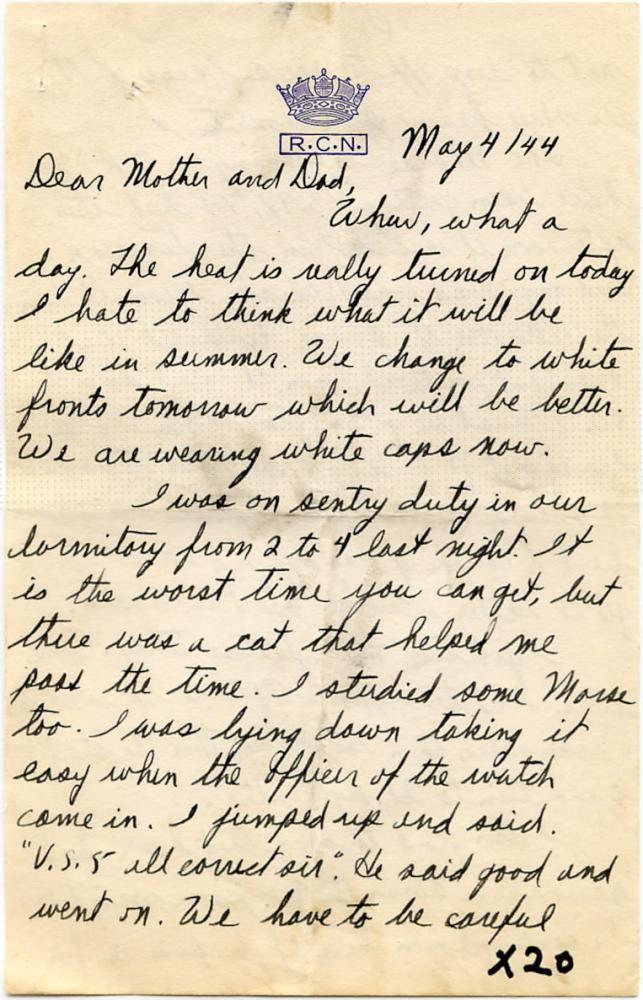 R.C.N.
May 4/44
Dear Mother and Dad,
Whew, what a
day. The heat is really turned on today
I hate to think what it will be
like in summer. We change to white
fronts tomorrow which will be better.
We are wearing white caps now.
I was on sentry duty in our
dormitory from 2 to 4 last night. It
is the worst time you can get, but
there was a cat that helped me
pass the time. I studied some Morse
too. I was lying down taking it
easy when the officer of the watch
came in. I jumped up and said.
"V.S.5 all correct sir". He said good and
went on. We have to be careful
X20